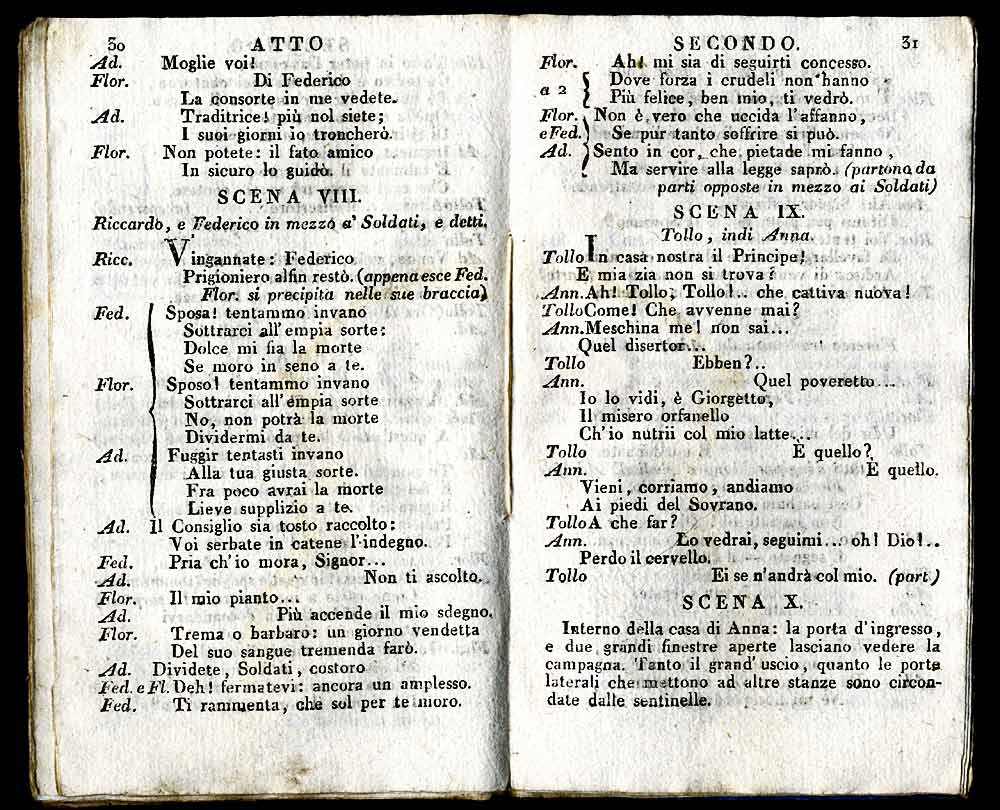 30 ATTO
Ad. Moglie voi!
Flor. Di Federico
La consorte in me vedete.
Ad. Traditrice! più nol siete;
I suoi giorni io troncherò.
Flor. Non potete: il fato amico
In sicuro lo guidò.
SCENA VIII.
Riccardo, e Federico in mezzo a' Soldati, e detti.
Ricc. Vingannate: Federico
Prigioniero alfin restò. (appena esce Fed.
Flor. si precipita nelle sue braccia)
Fed. Sposa! tentammo invano
Sottrarci all'empia sorte:
Dolce mi fia la morte
Se moro in seno a te.
Flor. Sposo! tentammo invano
Sottrarci all'empia sorte
No, non potrà la morte
Dividermi da te.
Ad. Fuggir tentasti invano
Alla tua giusta sorte.
Fra poco avrai la morte
Lieve supplizio a te.
Ad. Il Consiglio sia tosto raccolto:
Voi serbate in catene l'indegno.
Fed. Pria ch'io mora, Signor...
Ad. Non ti ascolto.
Flor. Il mio pianto...
Ad. Più accende il mio sdegno.
Flor. Trema o barbaro: un giorno vendetta
Del suo sangue tremenda farò.
Ad. Dividete, Soldati, costoro
Fed. e Fl. Deh! fermatevi: ancora un amplesso.
Fed. Ti rammenta, che sol per te moro.
SECONDO. 31
Flor. Ah! mi sia di seguirti concesso.
a 2 Dove forza i crudeli non hanno
Più felice, ben mio, ti vedrò.
Flor. Non è vero che uccida l'affanno,
e Fed. Se pur tanto soffrire si può.
Ad. Sento in cor, che pietade mi fanno,
Ma servire alla legge saprò. (partono da
parti opposte in mezzo ai Soldati)
SCENA IX.
Tollo, indi Anna.
Tollo In casa nostra il Principe!
E mia zia non si trova?
Ann. Ah! Tollo, Tollo!.. che cattiva nuova!
Tollo Come! Che avvenne mai?
Ann. Meschina me! non sai...
Quel disertor...
Tollo Ebben?..
Ann. Quel poveretto...
Io lo vidi, è Giorgetto,
Il misero orfanello
Ch'io nutrii col mio latte...
Tollo E quello?
Ann. E quello.
Vieni, corriamo, andiamo
Ai piedi del Sovrano.
Tollo A che far?
Ann. Lo vedrai, seguimi... oh! Dio!..
Perdo il cervello.
Tollo Ei se n'andrà col mio. (part.)
SCENA X.
Interno della casa di Anna: la porta d'ingresso,
e due grandi finestre aperte lasciano vedere la
campagna. Tanto il grand'uscio, quanto le porte
laterali che mettono ad altre stanze sono circon-
date dalle sentinelle.